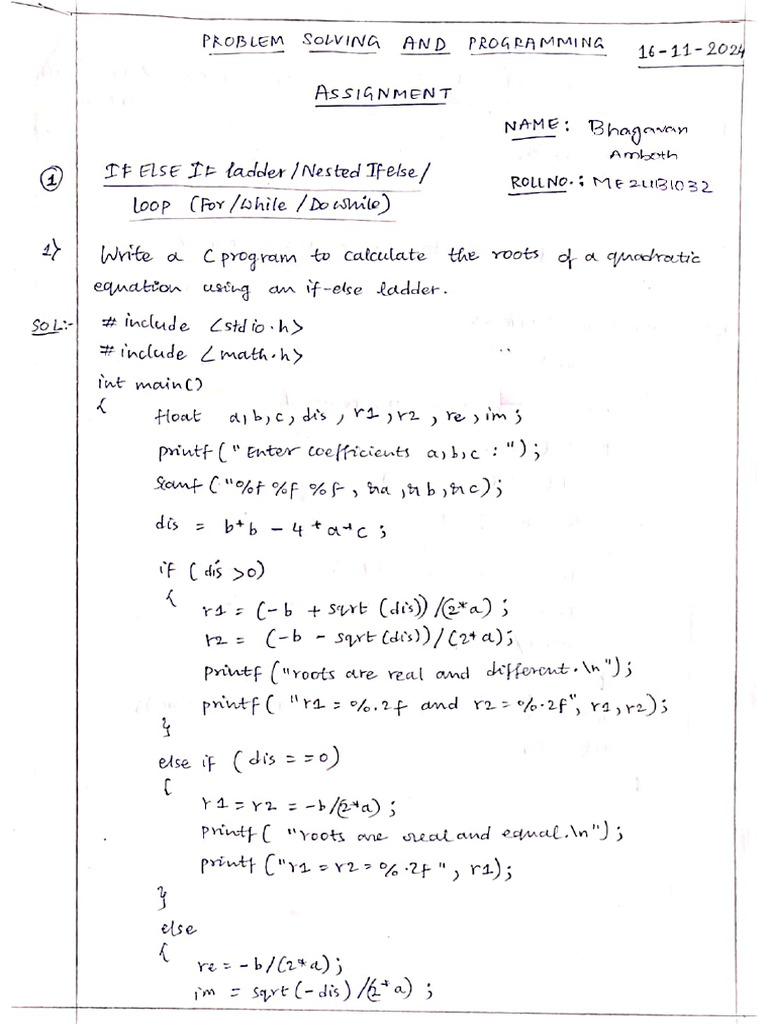 PROBLEM SOLVING AND PROGRAMMING 16-11-2024
ASSIGNMENT
NAME: Bhagavan
Ambeth
ROLLNO.: ME24B1032
① IF ELSE IF ladder/Nested Ifelse/
loop (For/While/Dowhile)
1) Write a C program to calculate the roots of a quadratic
equation using an if-else ladder.
SOL:- #include <stdio.h>
#include <math.h>
int main()
{
float a,b,c, dis, r1, r2, re, im;
printf("Enter coefficients a,b,c : ");
scanf("%f %f %f, &a, &b, &c);
dis = b*b - 4*a*c;
if (dis >0)
{
r1 = (-b + sqrt (dis))/(2*a);
r2 = (-b - sqrt(dis))/(2*a);
printf("roots are real and different.\n");
printf( "r1 = %.2f and r2 = %.2f", r1, r2);
}
else if (dis == 0)
{
r1 = r2 = -b/(2*a);
printf( "roots are real and equal.\n");
printf("r1 = r2 = %.2f", r1);
}
else
{
re = -b/(2*a);
im = sqrt(-dis)/(2*a);